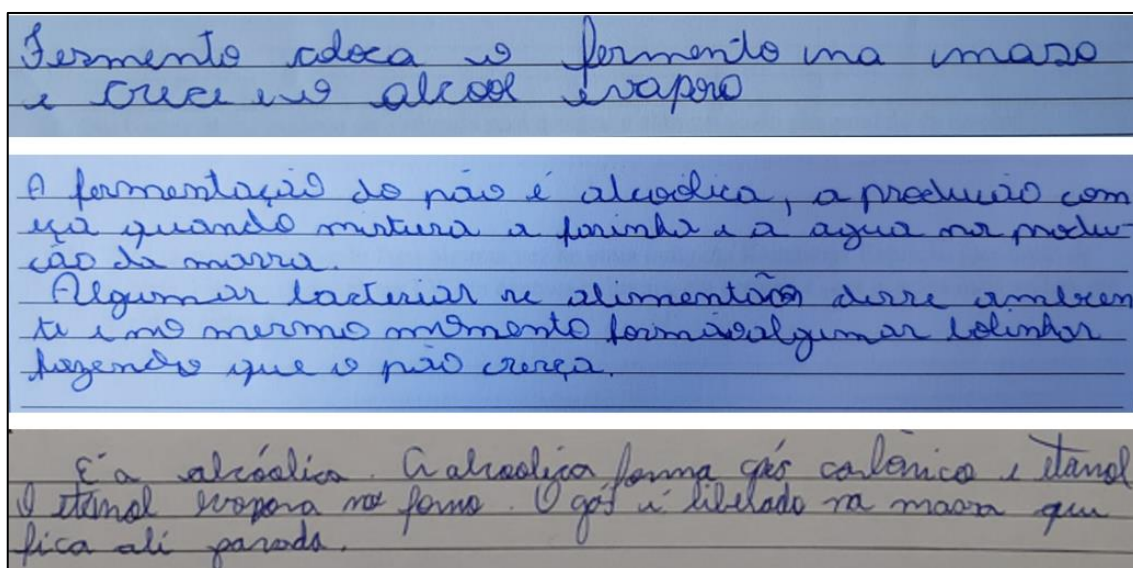 Fermento coloca o fermento na maso
e crece e o alcool evapro
A fermentação do pão é alcoólica, a produção com
eça quando mistura a farinha e a agua na produ-
ção da massa.
Algumas bacterias se alimentão desse ambien
te e no mesmo momento formão algumas bolinhas
fazendo que o pão cresça.
É a alcóolica. A alcoolica forma gás carbônico e etanol
O etanol evapora no forno. O gás é liberado na massa que
fica ali parada.